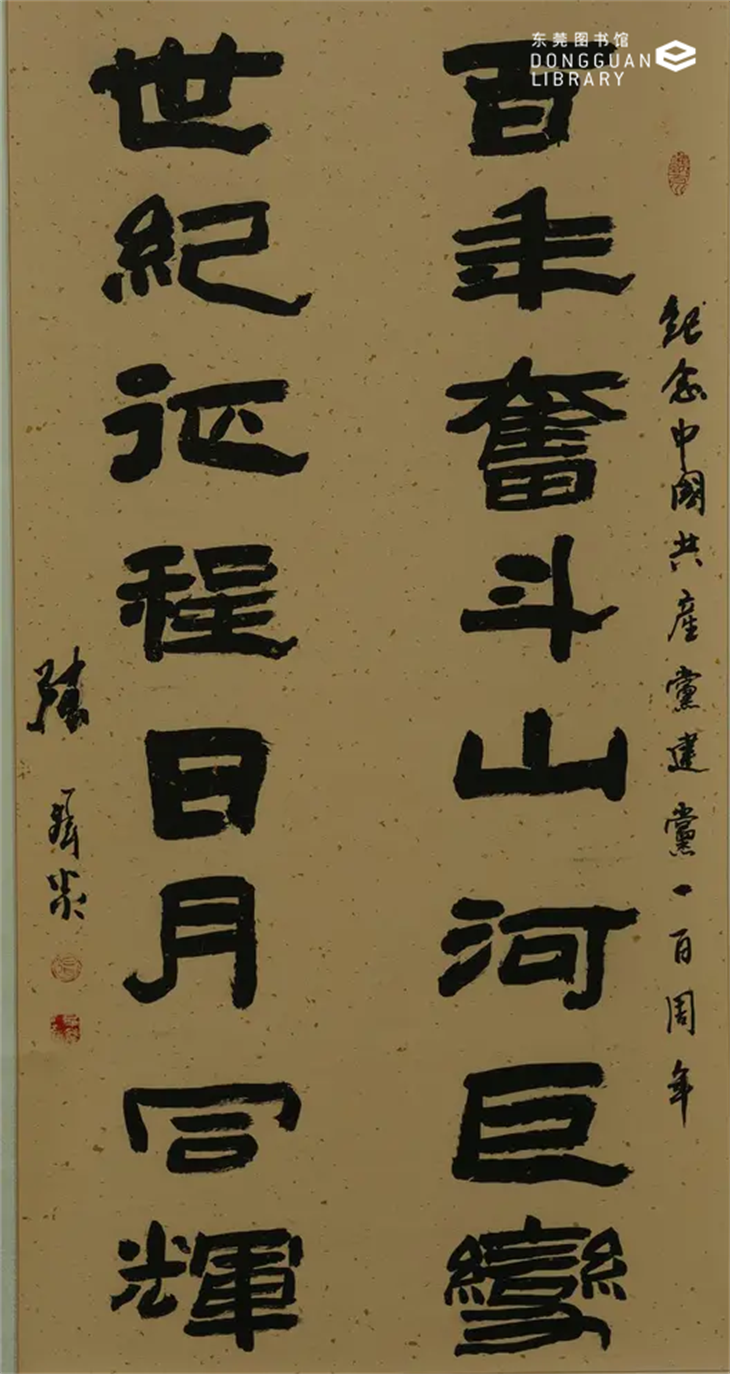 东莞图书馆
DONGGUAN
LIBRARY
紀念中國共産黨建黨一百周年
百年奮斗山河巨變
世紀征程日月同輝